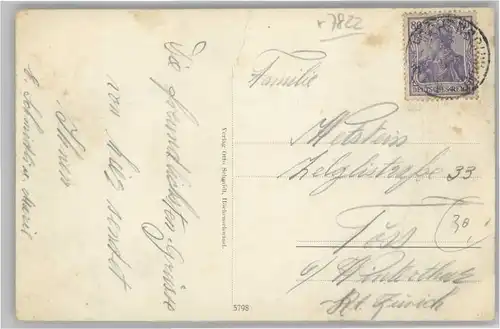 v 7822
Die freundlichsten Grüsse
von hier sendet
Ihnen
Familie
Wetstein
Zelglistraße 33
Töss
b/ Winterthur
Kt. Zürich
30
DEUTSCHES REICH
Verlag Otto
5798